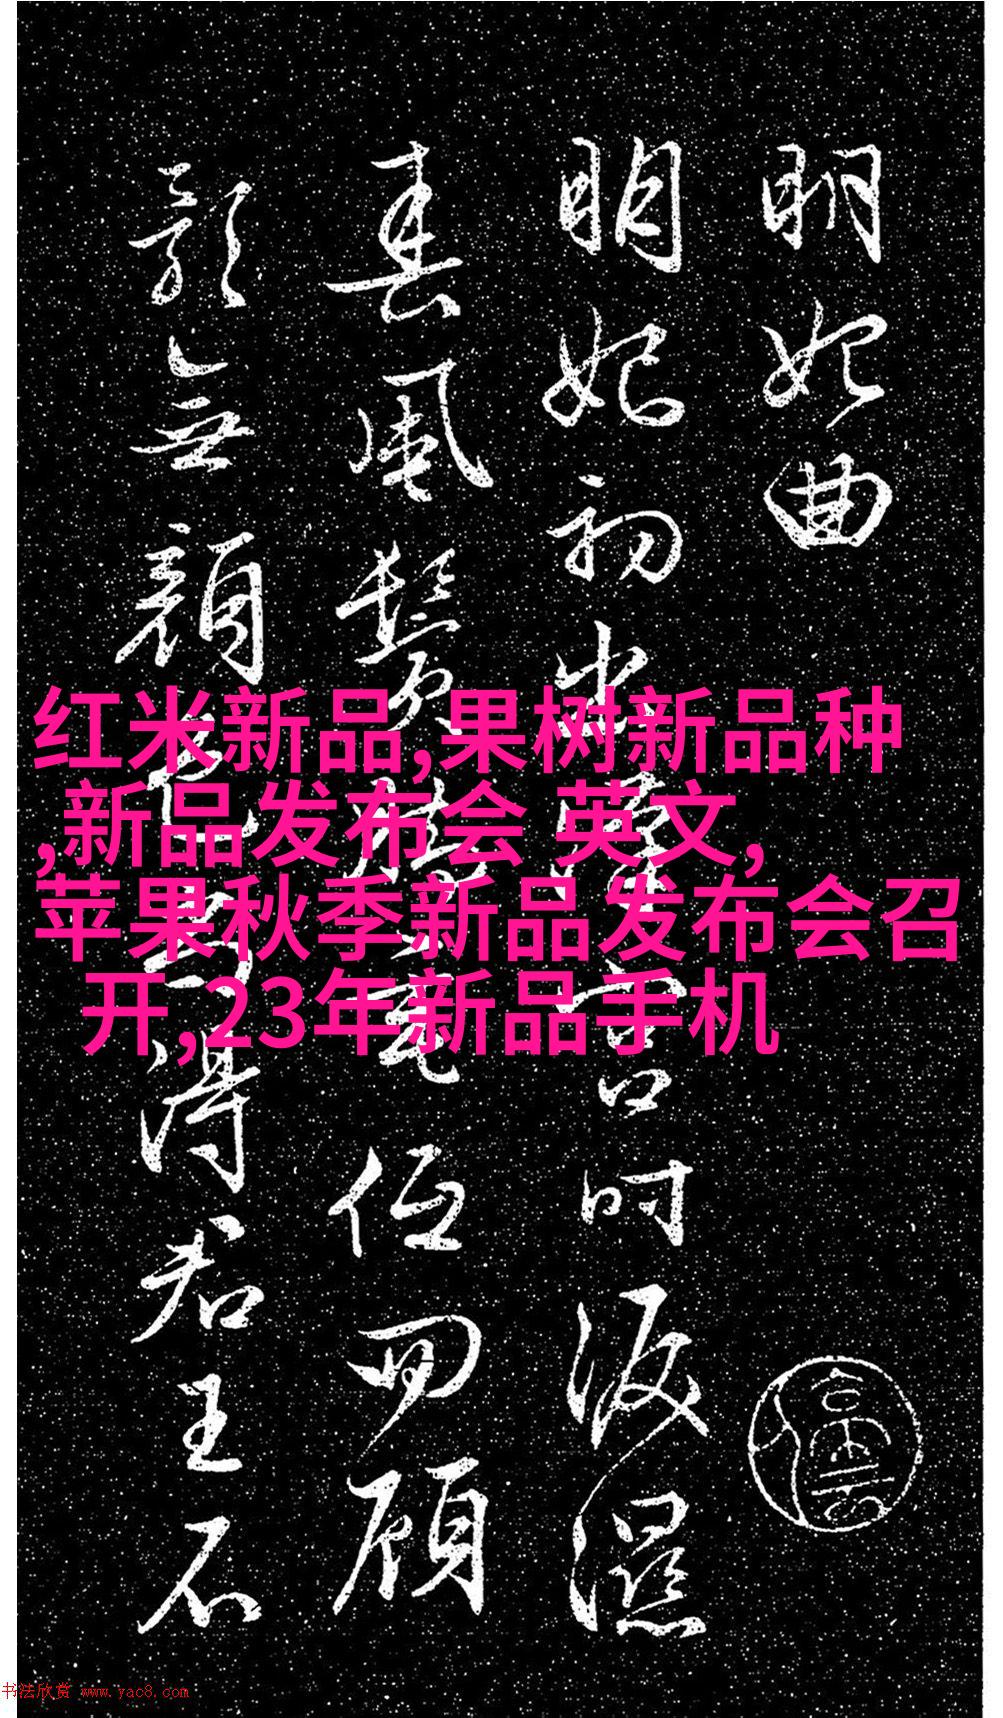 红米新品,果树新品种
,新品发布会 英文,
苹果秋季新品发布会召
开,23年新品手机
明妃曲
明妃初出漢宮時淚濕
春風鬢脚垂低回顧
影無顏色尚得君王不
书法欣赏 www.yac8.com